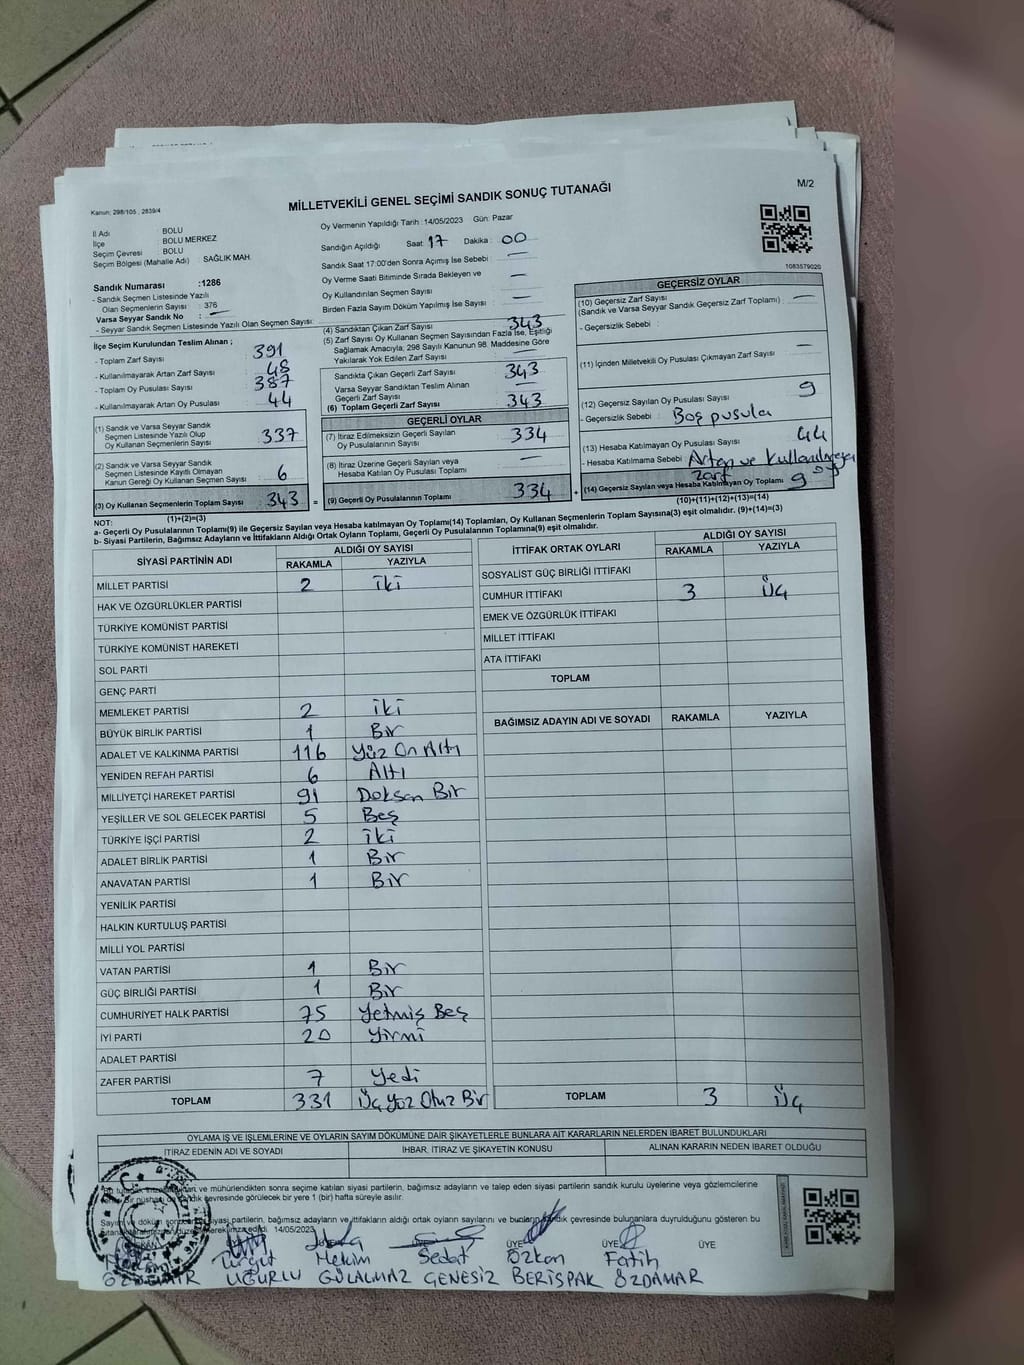 MİLLETVEKİLİ GENEL SEÇİMİ SANDIK SONUÇ TUTANAĞI
M/2
Kanun: 298/105, 2839/4
İl Adı BOLU
İlçe BOLU MERKEZ
Seçim Çevresi BOLU
Seçim Bölgesi (Mahalle Adı) : SAĞLIK MAH.
Oy Vermenin Yapıldığı Tarih : 14/05/2023 Gün: Pazar
Sandığın Açıldığı Saat 17 Dakika : 00
Sandık Saat 17:00'den Sonra Açımış İse Sebebi : —
Oy Verme Saati Bitiminde Sırada Bekleyen ve
Oy Kullandırılan Seçmen Sayısı : —
Birden Fazla Sayım Döküm Yapılmış İse Sayısı : —
1083579020
Sandık Numarası :1286
- Sandık Seçmen Listesinde Yazılı
Olan Seçmenlerin Sayısı : 376
Varsa Seyyar Sandık No : —
- Seyyar Sandık Seçmen Listesinde Yazılı Olan Seçmen Sayısı:
İlçe Seçim Kurulundan Teslim Alınan ;
- Toplam Zarf Sayısı : 391
- Kullanılmayarak Artan Zarf Sayısı : 48
- Toplam Oy Pusulası Sayısı : 387
- Kullanılmayarak Artan Oy Pusulası : 44
(1) Sandık ve Varsa Seyyar Sandık
Seçmen Listesinde Yazılı Olup
Oy Kullanan Seçmenlerin Sayısı : 337
(2) Sandık ve Varsa Seyyar Sandık
Seçmen Listesinde Kayıtlı Olmayan
Kanun Gereği Oy Kullanan Seçmen Sayısı : 6
(3) Oy Kullanan Seçmenlerin Toplam Sayısı : 343
(1)+(2)=(3)
(4) Sandıktan Çıkan Zarf Sayısı : 343
(5) Zarf Sayısı Oy Kullanan Seçmen Sayısından Fazla İse, Eşitliği
Sağlamak Amacıyla; 298 Sayılı Kanunun 98. Maddesine Göre
Yakılarak Yok Edilen Zarf Sayısı : —
Sandıkta Çıkan Geçerli Zarf Sayısı : 343
Varsa Seyyar Sandıktan Teslim Alınan
Geçerli Zarf Sayısı : —
(6) Toplam Geçerli Zarf Sayısı : 343
GEÇERLİ OYLAR
(7) İtiraz Edilmeksizin Geçerli Sayılan
Oy Pusulalarının Sayısı : 334
(8) İtiraz Üzerine Geçerli Sayılan veya
Hesaba Katılan Oy Pusulası Toplamı : —
= (9) Geçerli Oy Pusulalarının Toplamı : 334
GEÇERSİZ OYLAR
(10) Geçersiz Zarf Sayısı : —
(Sandık ve Varsa Seyyar Sandık Geçersiz Zarf Toplamı) :
- Geçersizlik Sebebi :
(11) İçinden Milletvekili Oy Pusulası Çıkmayan Zarf Sayısı : —
(12) Geçersiz Sayılan Oy Pusulası Sayısı : 9
- Geçersizlik Sebebi : Boş pusula
(13) Hesaba Katılmayan Oy Pusulası Sayısı : 44
- Hesaba Katılmama Sebebi : Artan ve Kullanılmayan
zarf
+ (14) Geçersiz Sayılan veya Hesaba Katılmayan Oy Toplamı : 9
(10)+(11)+(12)+(13)=(14)
NOT:
a- Geçerli Oy Pusulalarının Toplamı(9) ile Geçersiz Sayılan veya Hesaba katılmayan Oy Toplamı(14) Toplamları, Oy Kullanan Seçmenlerin Toplam Sayısına(3) eşit olmalıdır. (9)+(14)=(3)
b- Siyasi Partilerin, Bağımsız Adayların ve İttifakların Aldığı Ortak Oyların Toplamı, Geçerli Oy Pusulalarının Toplamına(9) eşit olmalıdır.
SİYASİ PARTİNİN ADI ALDIĞI OY SAYISI
RAKAMLA YAZIYLA
MİLLET PARTİSİ 2 iki
HAK VE ÖZGÜRLÜKLER PARTİSİ
TÜRKİYE KOMÜNİST PARTİSİ
TÜRKİYE KOMÜNİST HAREKETİ
SOL PARTİ
GENÇ PARTİ
MEMLEKET PARTİSİ 2 iki
BÜYÜK BİRLİK PARTİSİ 1 Bir
ADALET VE KALKINMA PARTİSİ 116 Yüz On Altı
YENİDEN REFAH PARTİSİ 6 Altı
MİLLİYETÇİ HAREKET PARTİSİ 91 Doksan Bir
YEŞİLLER VE SOL GELECEK PARTİSİ 5 Beş
TÜRKİYE İŞÇİ PARTİSİ 2 iki
ADALET BİRLİK PARTİSİ 1 Bir
ANAVATAN PARTİSİ 1 Bir
YENİLİK PARTİSİ
HALKIN KURTULUŞ PARTİSİ
MİLLİ YOL PARTİSİ
VATAN PARTİSİ 1 Bir
GÜÇ BİRLİĞİ PARTİSİ 1 Bir
CUMHURİYET HALK PARTİSİ 75 Yetmiş Beş
İYİ PARTİ 20 Yirmi
ADALET PARTİSİ
ZAFER PARTİSİ 7 Yedi
TOPLAM 331 Üç Yüz Otuz Bir
İTTİFAK ORTAK OYLARI ALDIĞI OY SAYISI
RAKAMLA YAZIYLA
SOSYALİST GÜÇ BİRLİĞİ İTTİFAKI
CUMHUR İTTİFAKI 3 Üç
EMEK VE ÖZGÜRLÜK İTTİFAKI
MİLLET İTTİFAKI
ATA İTTİFAKI
TOPLAM
BAĞIMSIZ ADAYIN ADI VE SOYADI RAKAMLA YAZIYLA
TOPLAM 3 Üç
OYLAMA İŞ VE İŞLEMLERİNE VE OYLARIN SAYIM DÖKÜMÜNE DAİR ŞİKAYETLERLE BUNLARA AİT KARARLARIN NELERDEN İBARET BULUNDUKLARI
İTİRAZ EDENİN ADI VE SOYADI İHBAR, İTİRAZ VE ŞİKAYETİN KONUSU ALINAN KARARIN NEDEN İBARET OLDUĞU
ve mühürlendikten sonra seçime katılan siyasi partilerin, bağımsız adayların ve talep eden siyasi partilerin sandık kurulu üyelerine veya gözlemcilerine
çevresinde görülecek bir yere 1 (bir) hafta süreyle asılır.
siyasi partilerin, bağımsız adayların ve ittifakların aldığı ortak oyların sayılarını ve bunların sandık çevresinde bulunanlara duyrulduğunu gösteren bu
14/05/2023
ÜYE ÜYE ÜYE
Turgut Mekim Sedat Özkan Fatih
ÖZDEMİR UĞURLU GÜLALMAZ GENESİZ BERİSPAK ÖZDAMAR